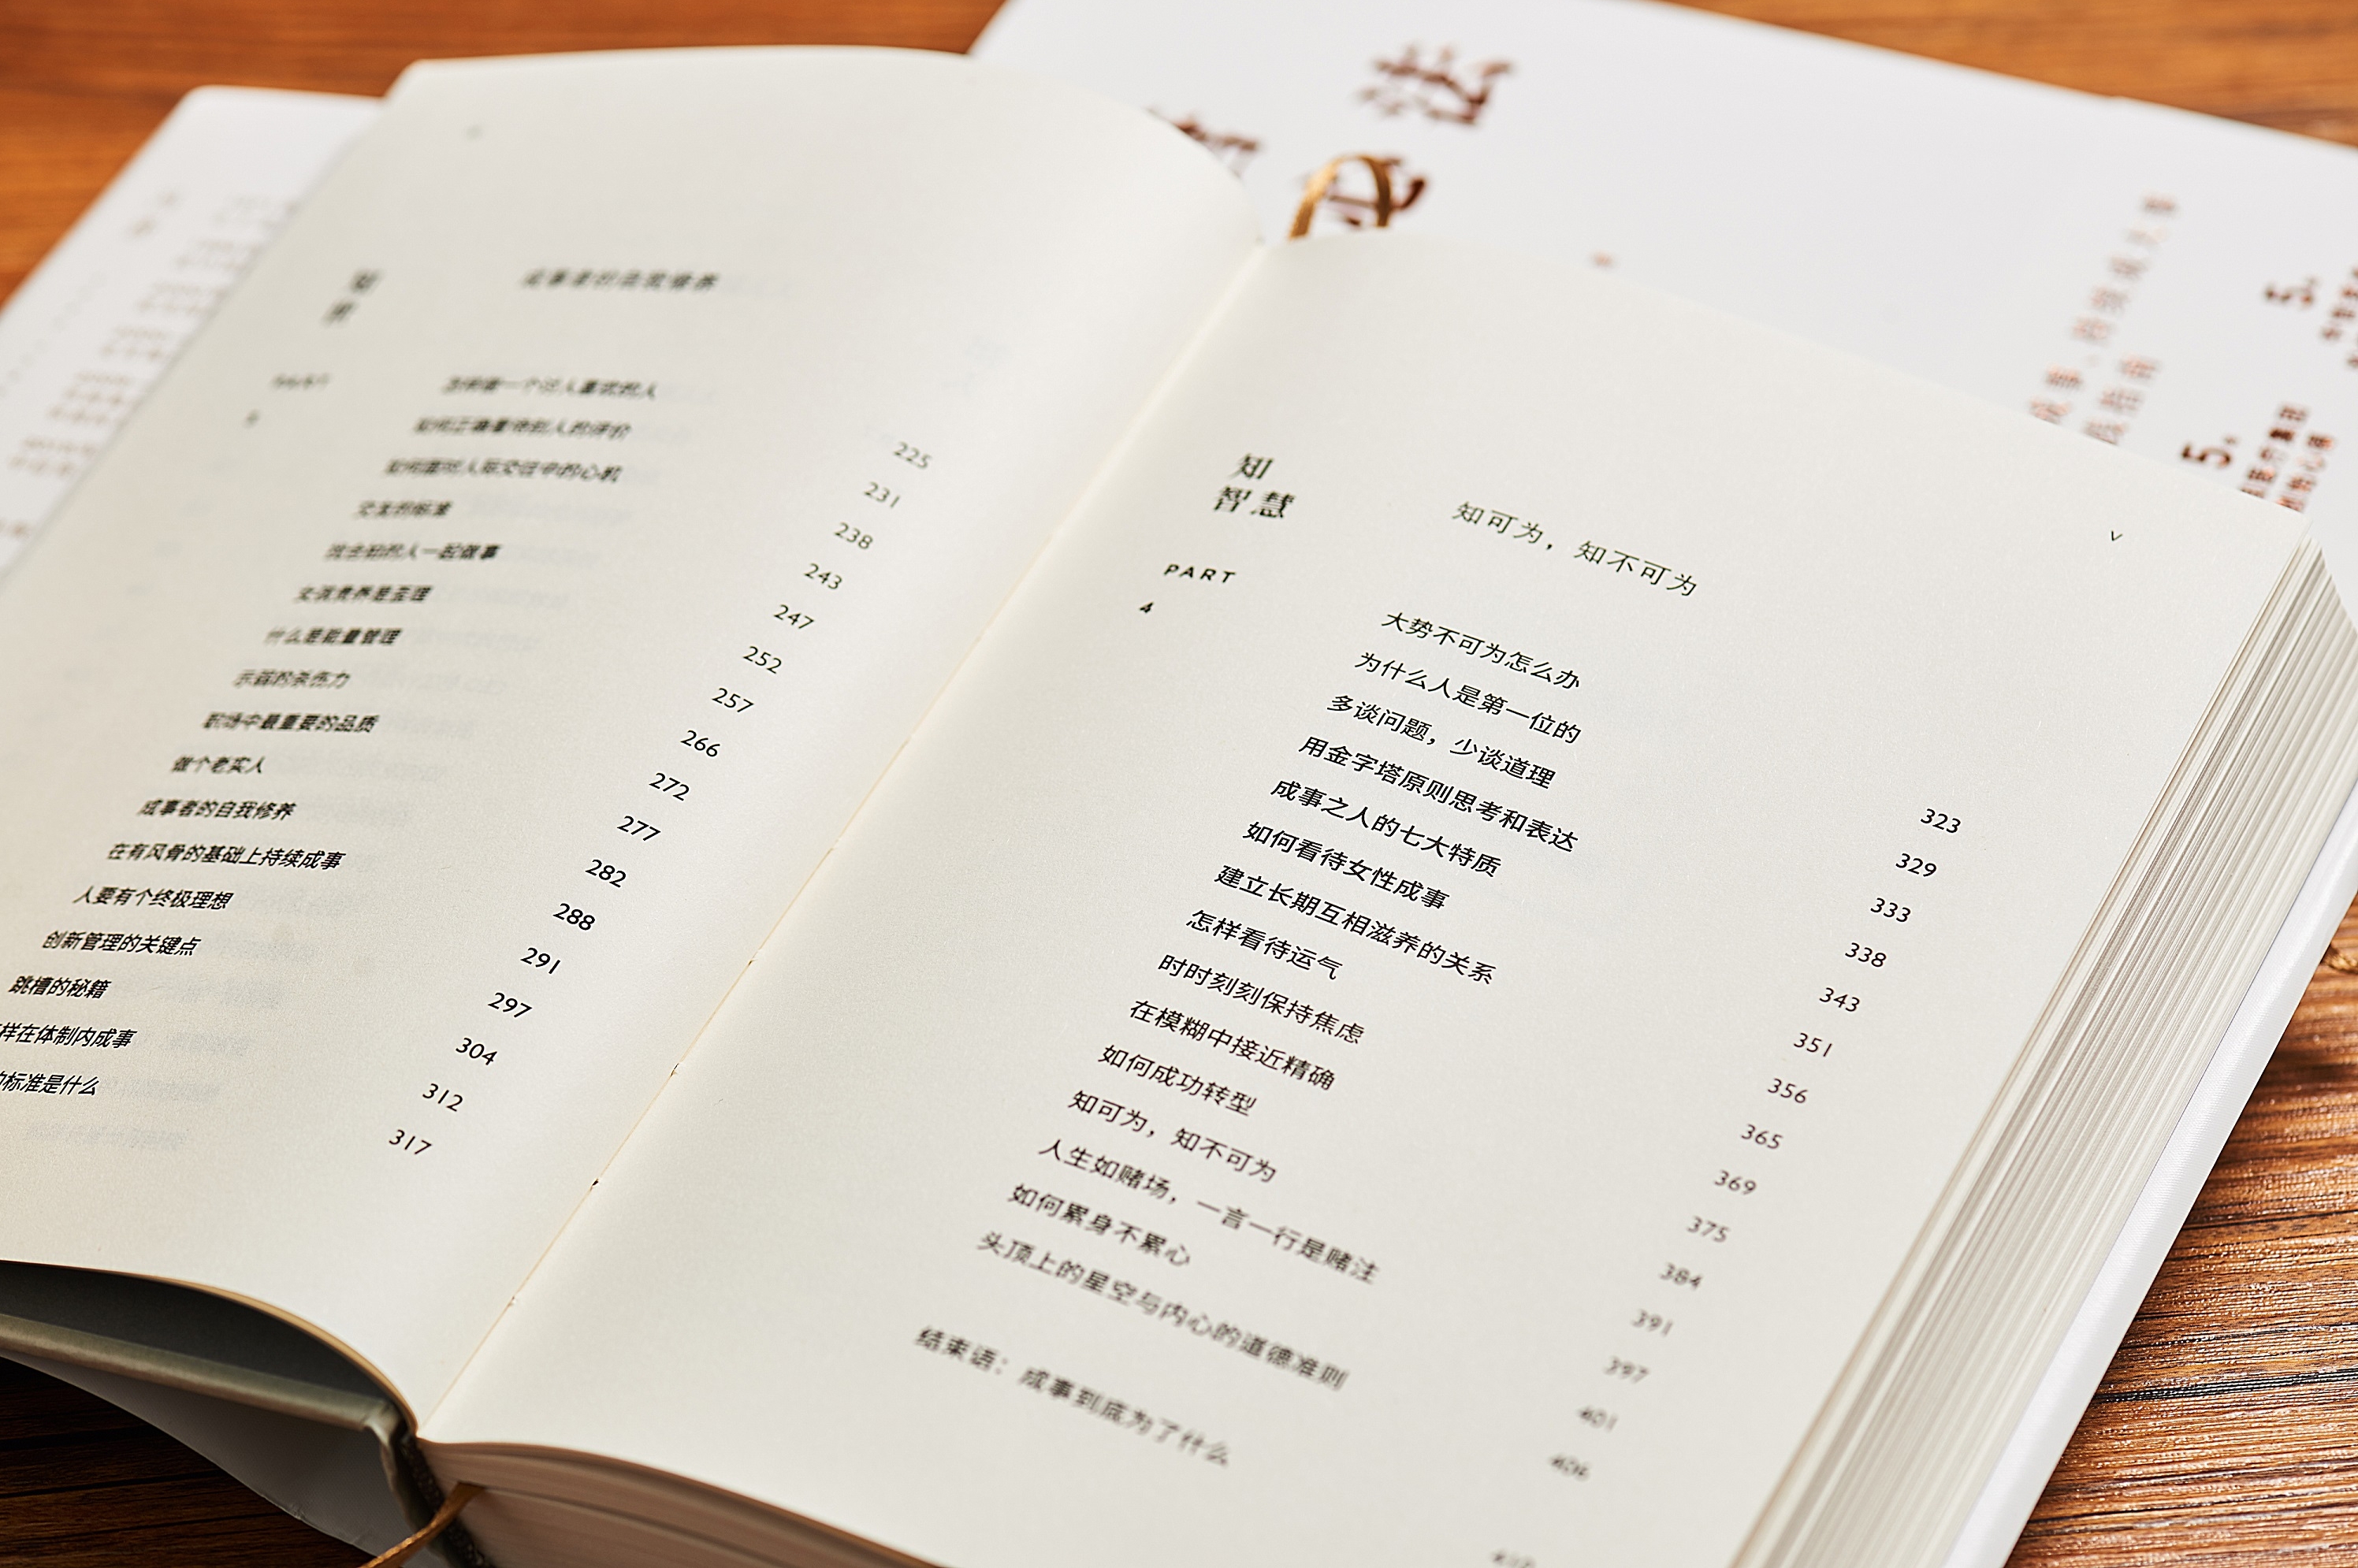 成事者的自我修养
怎样做一个讨人喜欢的人
如何正确看待别人的评价 225
如何面对人际交往中的心机 231
交友的标准 238
找会知的人一起做事 243
女孩贵养是歪理 247
什么是能量管理 252
示弱的杀伤力 257
职场中最重要的品质 266
做个老实人 272
成事者的自我修养 277
在有风骨的基础上持续成事 282
人要有个终极理想 288
创新管理的关键点 291
跳槽的秘籍 297
样在体制内成事 304
标准是什么 312
317
V
知
智慧
PART
4
知可为，知不可为
大势不可为怎么办 323
为什么人是第一位的 329
多谈问题，少谈道理 333
用金字塔原则思考和表达 338
成事之人的七大特质 343
如何看待女性成事 351
建立长期互相滋养的关系 356
怎样看待运气 365
时时刻刻保持焦虑 369
在模糊中接近精确 375
如何成功转型 384
知可为，知不可为 391
人生如赌场，一言一行是赌注 397
如何累身不累心 401
头顶上的星空与内心的道德准则 406
结束语：成事到底为了什么 410
心法